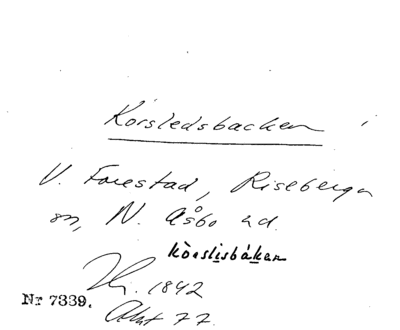 Korsledsbacken
V. Forestad, Riseberga
sn, N. Åsbo hd.
kòrslisbáken
1842
Nr 7339.
Akt 77.